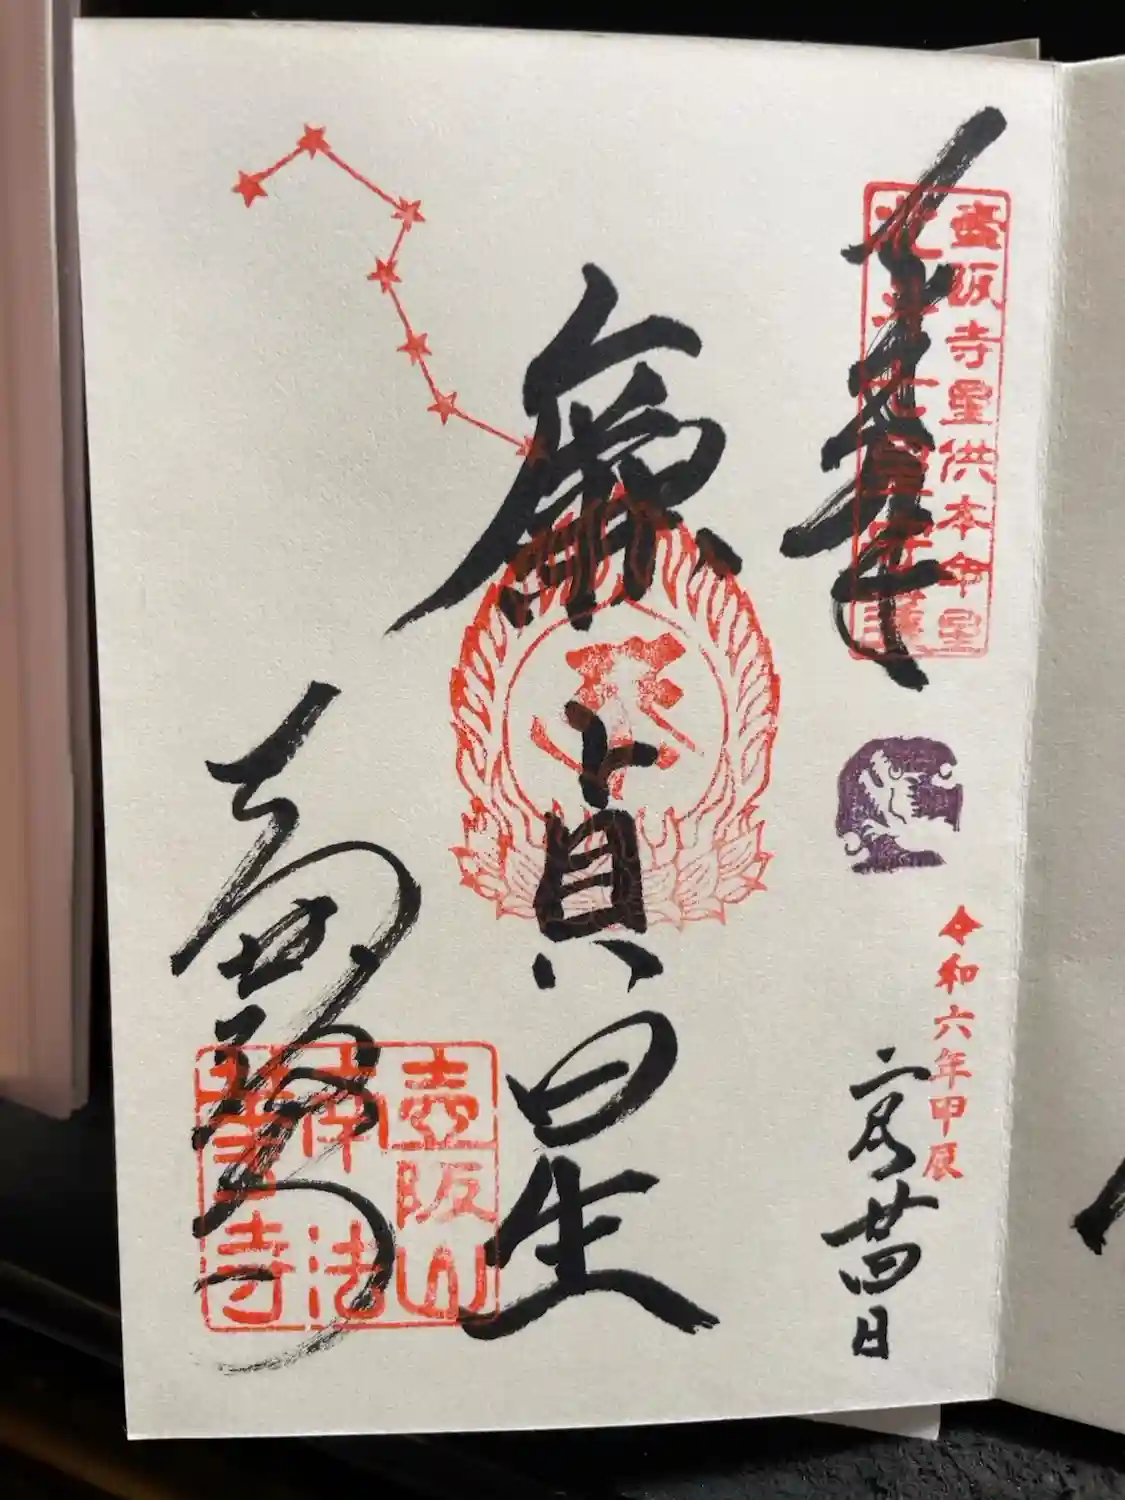 奉拝
壺阪寺星供本命星
北斗七星守護
令和六年甲辰
二月廿四日
廉貞星
壺阪寺
壺阪山
南法
華寺